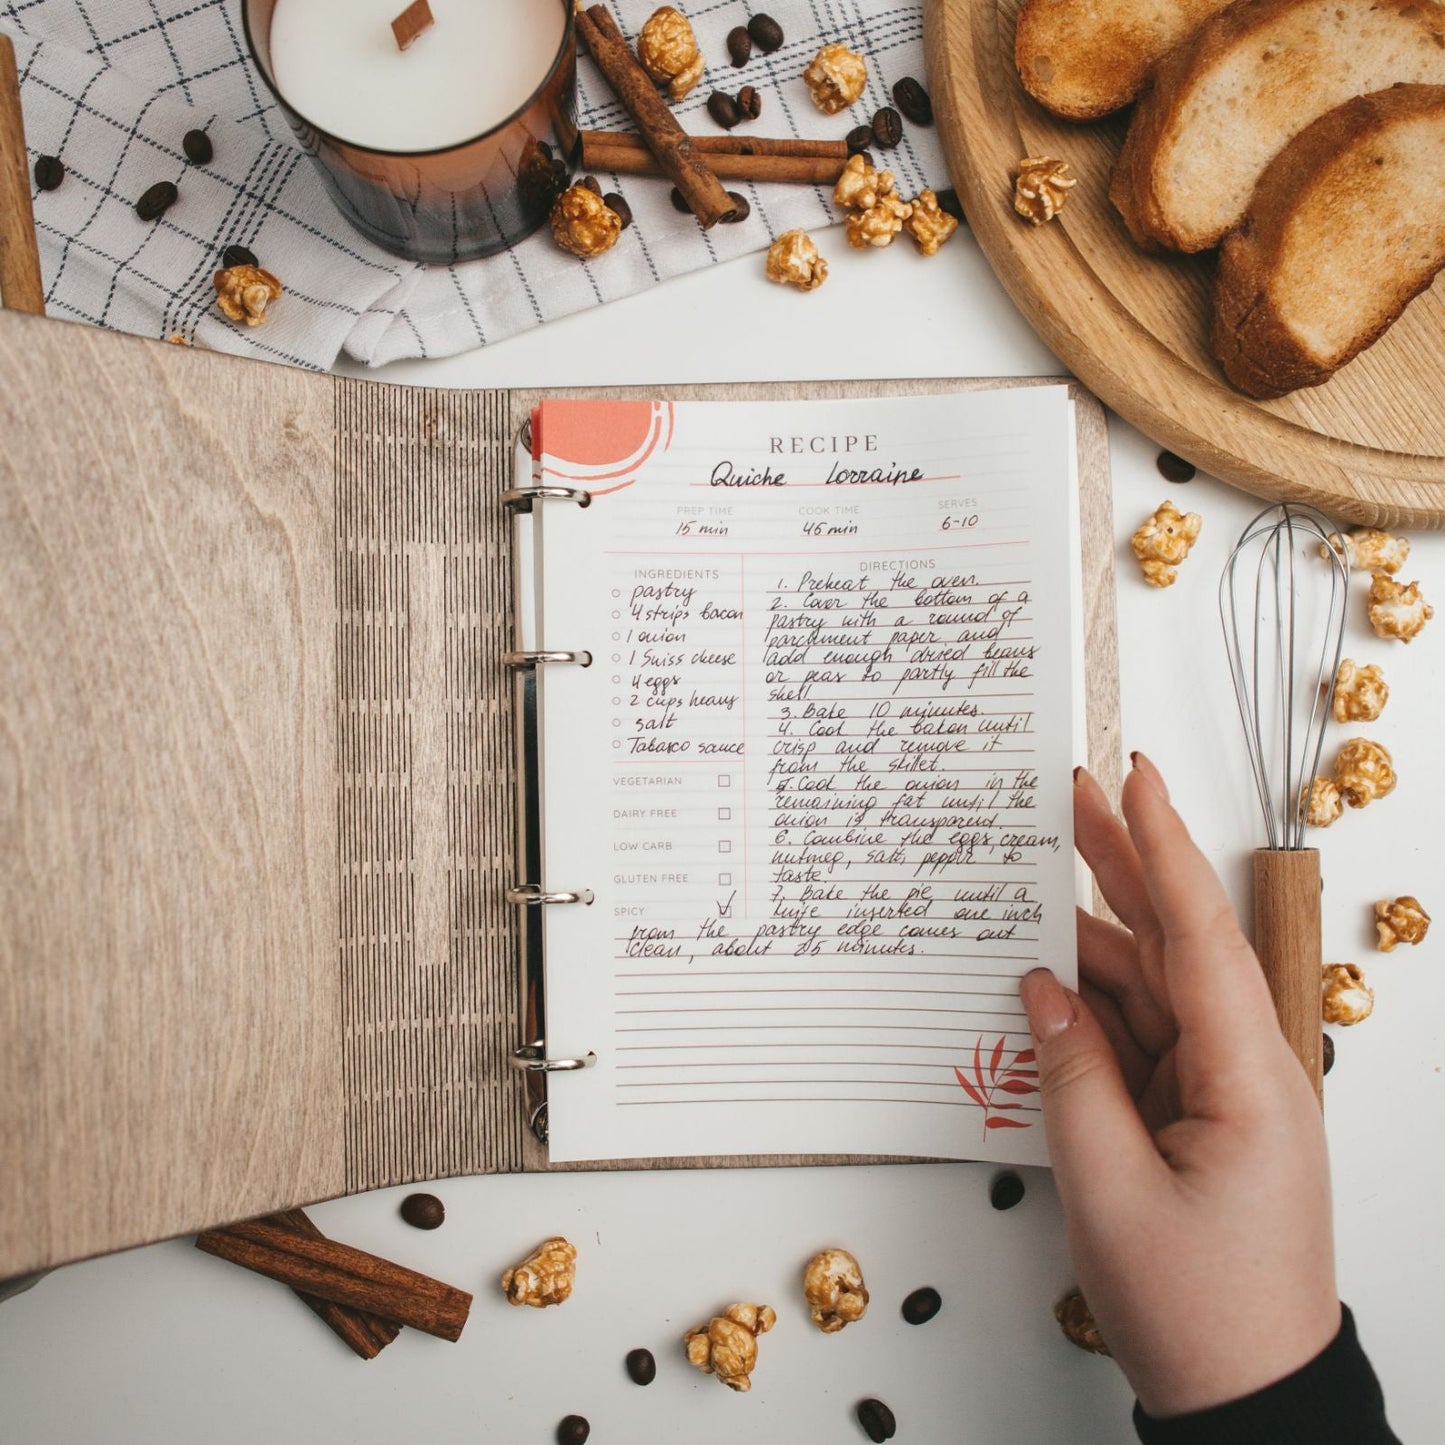 RECIPE
Quiche Lorraine
PREP TIME COOK TIME SERVES
15 min 45 min 6-10
INGREDIENTS
pastry
4 strips bacon
1 onion
1 Swiss cheese
4 eggs
2 cups heavy
salt
Tabasco sauce
VEGETARIAN
DAIRY FREE
LOW CARB
GLUTEN FREE
SPICY
DIRECTIONS
1. Preheat the oven.
2. Cover the bottom of a
pastry with a round of
parchment paper and
add enough dried beans
or peas to partly fill the
shell.
3. Bake 10 minutes.
4. Cook the bakon until
crisp and remove it
from the skillet.
5. Cook the onion in the
remaining fat until the
onion is transparent.
6. Combine the eggs, cream,
nutmeg, salt, pepper to
taste.
7. Bake the pie until a
knife inserted one inch
from the pastry edge comes out
clean, about 25 minutes.